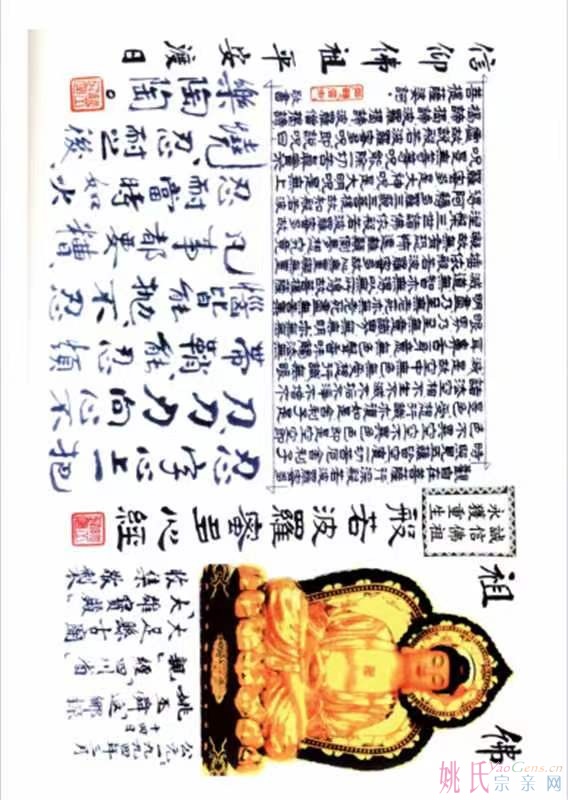 佛祖
誠信佛祖
永獲重生
般若波羅蜜多心經
觀自在菩薩行深般若波羅蜜多
時照見五蘊皆空度一切苦厄舍利子
色不異空空不異色色即是空空即
是色受想行識亦復如是舍利子是
諸法空相不生不滅不垢不淨不增不
減是故空中無色無受想行識無眼
耳鼻舌身意無色聲香味觸法無
眼界乃至無意識界無無明亦無無
明盡乃至無老死亦無老死盡無苦集
滅道無智亦無得以無所得故菩提薩
埵依般若波羅蜜多故心無罣礙無罣
礙故無有恐怖遠離顛倒夢想究竟
涅槃三世諸佛依般若波羅蜜多故
得阿耨多羅三藐三菩提故知般若波
羅蜜多是大神咒是大明咒是無上
咒是無等等咒能除一切苦真實不
虛故說般若波羅蜜多咒即說咒曰
揭諦揭諦波羅揭諦波羅僧揭諦
菩提薩婆訶
敬書
信仰佛祖平安渡日
忍字心上一把
刀刀刀向心不
帶鞘能忍煩
惱皆能拋不忍
凡事都要糟
忍耐當時如火
燒忍耐之後
樂陶陶。
公元一九九四年二月
十四日
返鄉探
親經四川省
大足縣古剎
「大雄寶殿」
收集敬製
姚氏宗亲网
YaoGens.cn